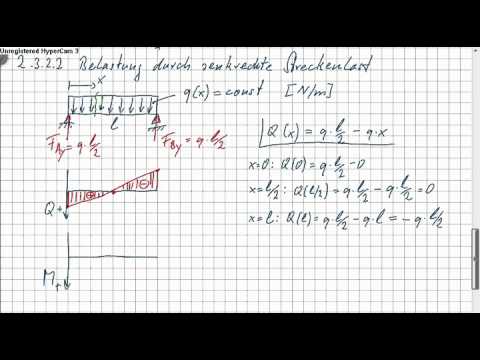 Unregistered HyperCam 3
2.3.2.2 Belastung durch senkrechte Streckenlast
x
q(x) = const [N/m]
l
F_Ay = q·l/2
F_By = q·l/2
Q(x) = q·l/2 - q·x
x=0: Q(0) = q·l/2 - 0
x=l/2: Q(l/2) = q·l/2 - q·l/2 = 0
x=l: Q(l) = q·l/2 - q·l = -q·l/2
⊕
⊖
Q +
M +